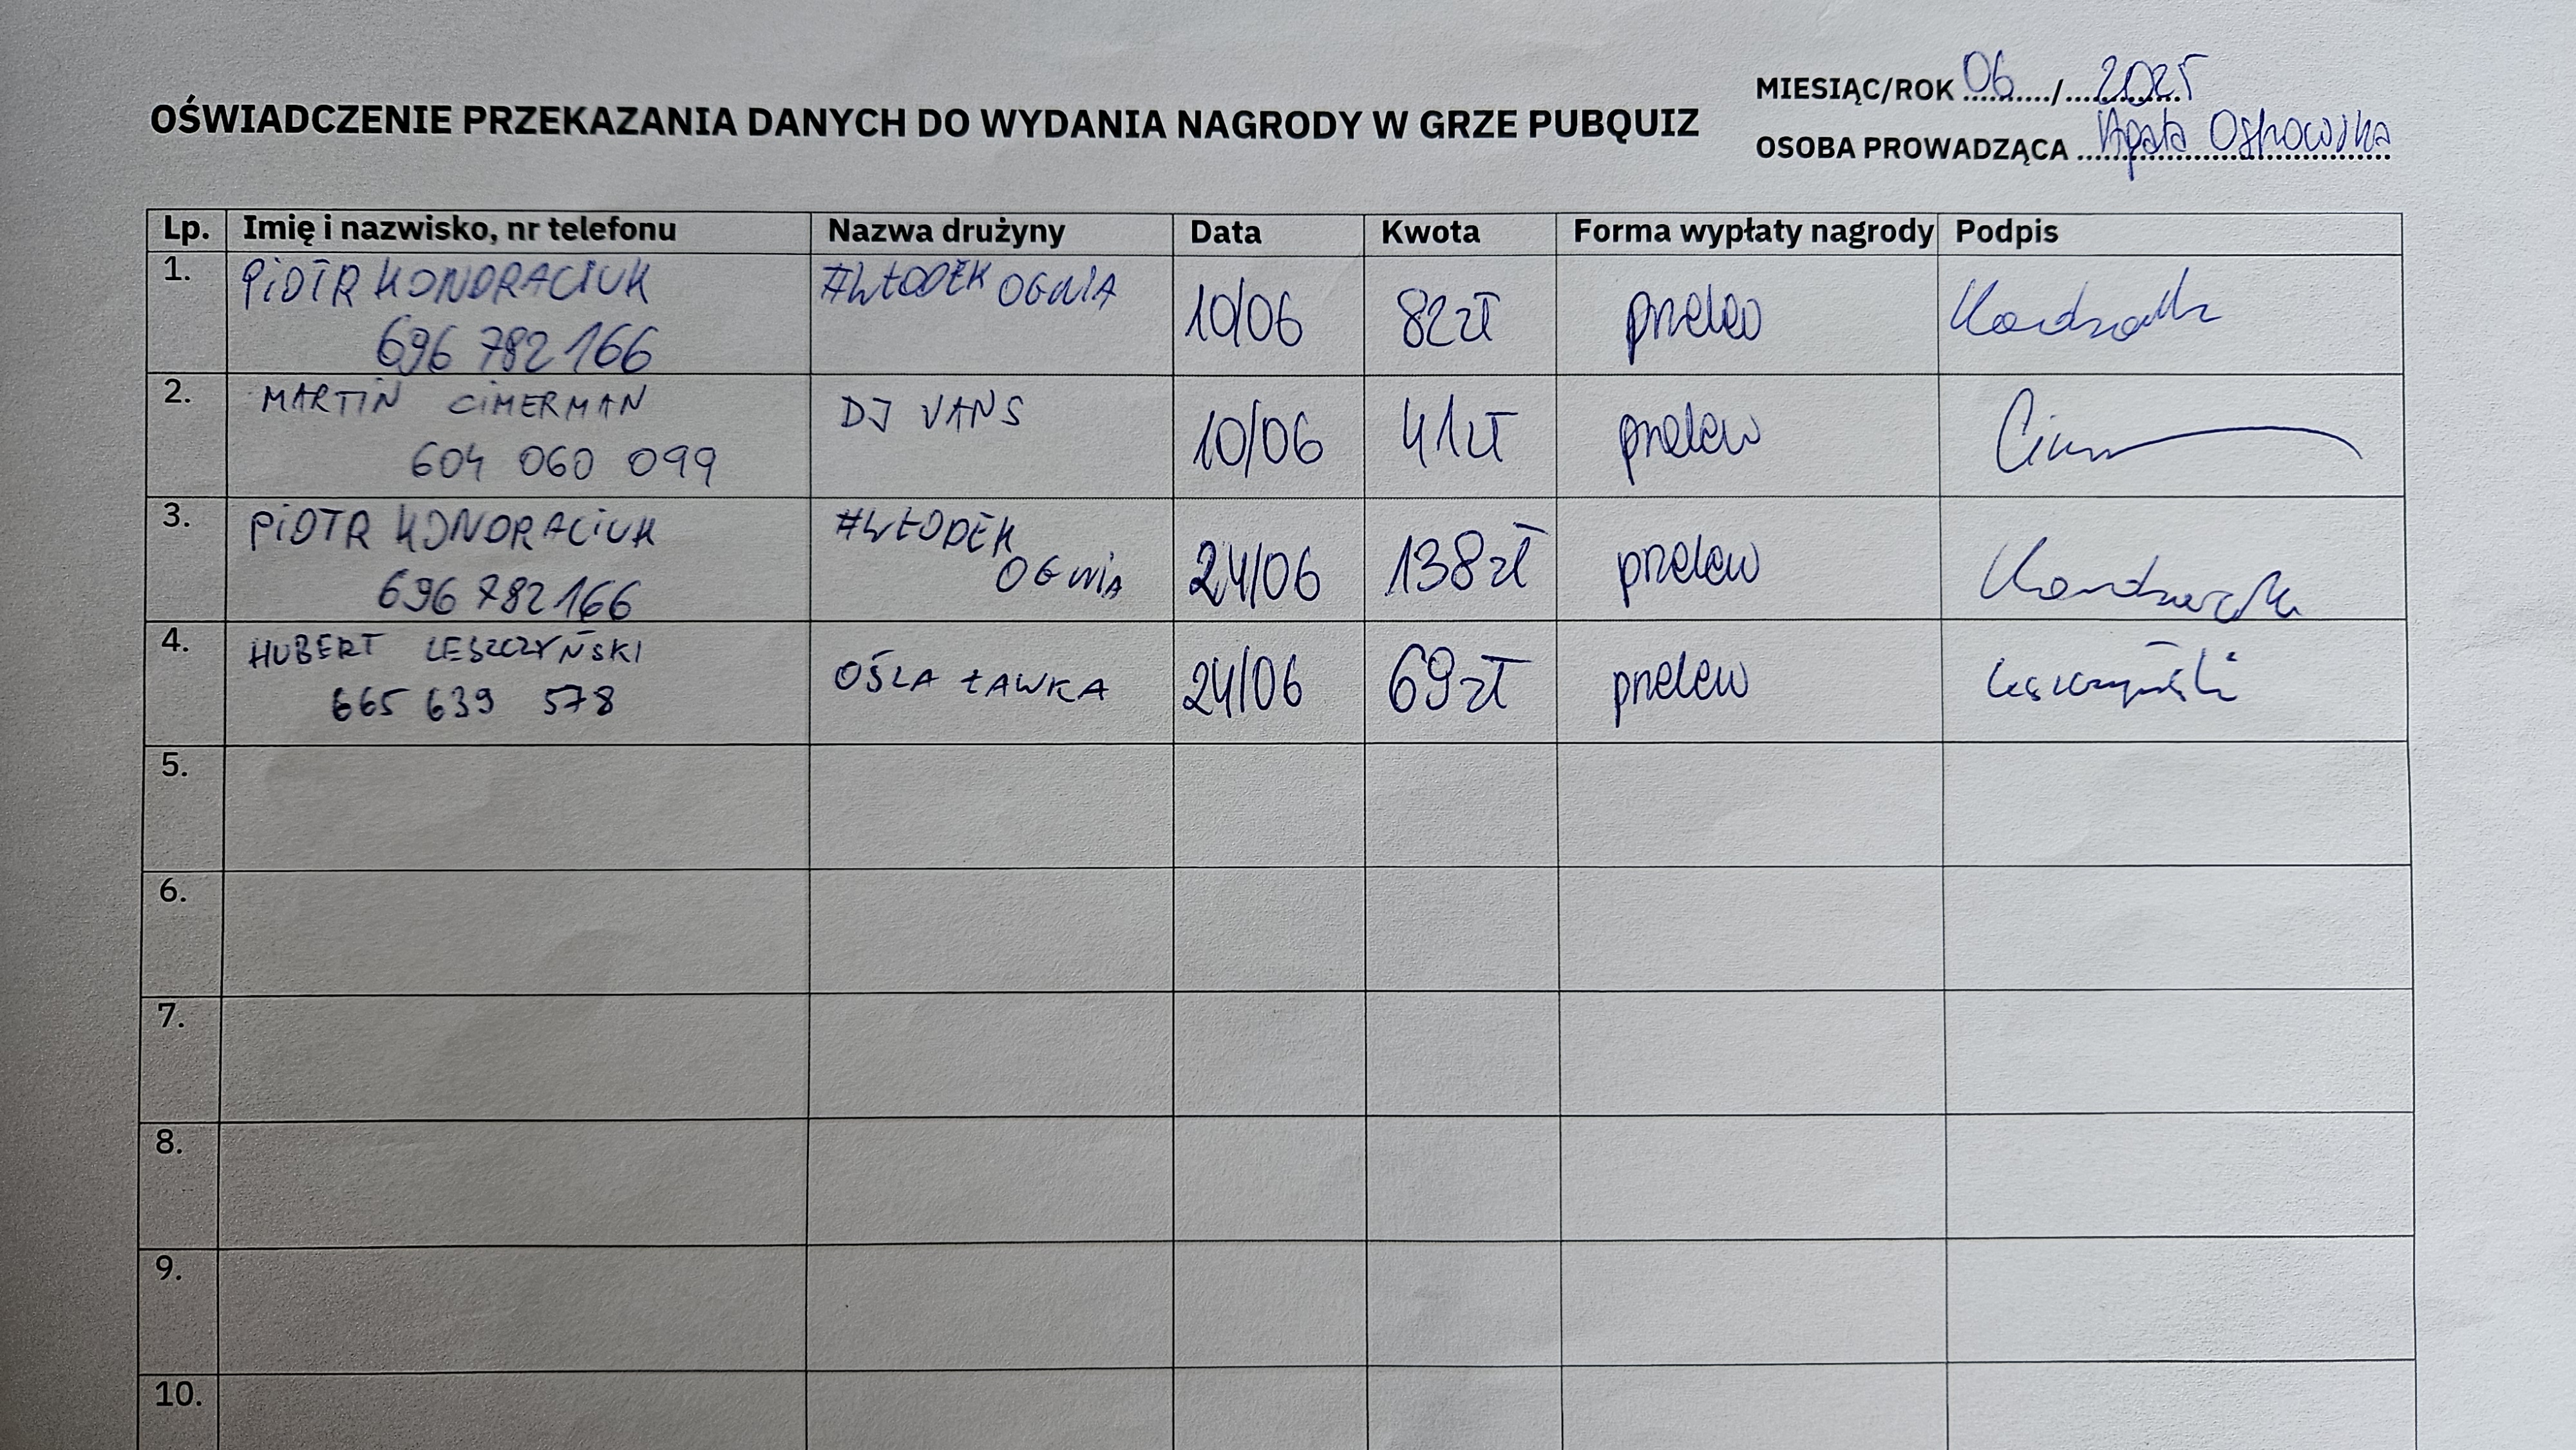 MIESIĄC/ROK 06/2025
OŚWIADCZENIE PRZEKAZANIA DANYCH DO WYDANIA NAGRODY W GRZE PUBQUIZ
OSOBA PROWADZĄCA Agata Ostrowska
Lp. Imię i nazwisko, nr telefonu Nazwa drużyny Data Kwota Forma wypłaty nagrody Podpis
1. PIOTR KONDRACIUK #WŁODEK OGNIA
696 782 166 10/06 82 zł przelew
2. MARTIN CIMERMAN DJ VANS
604 060 099 10/06 41 zł przelew
3. PIOTR KONDRACIUK #WŁODEK
OGNIA
696 782 166 24/06 138 zł przelew
4. HUBERT LESZCZYŃSKI
665 639 578 OŚLA ŁAWKA 24/06 69 zł przelew Leszczyński
5.
6.
7.
8.
9.
10.